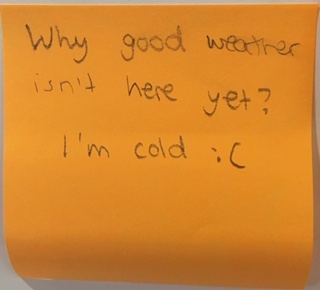 Why good weather
isn't here yet?
I'm cold :C